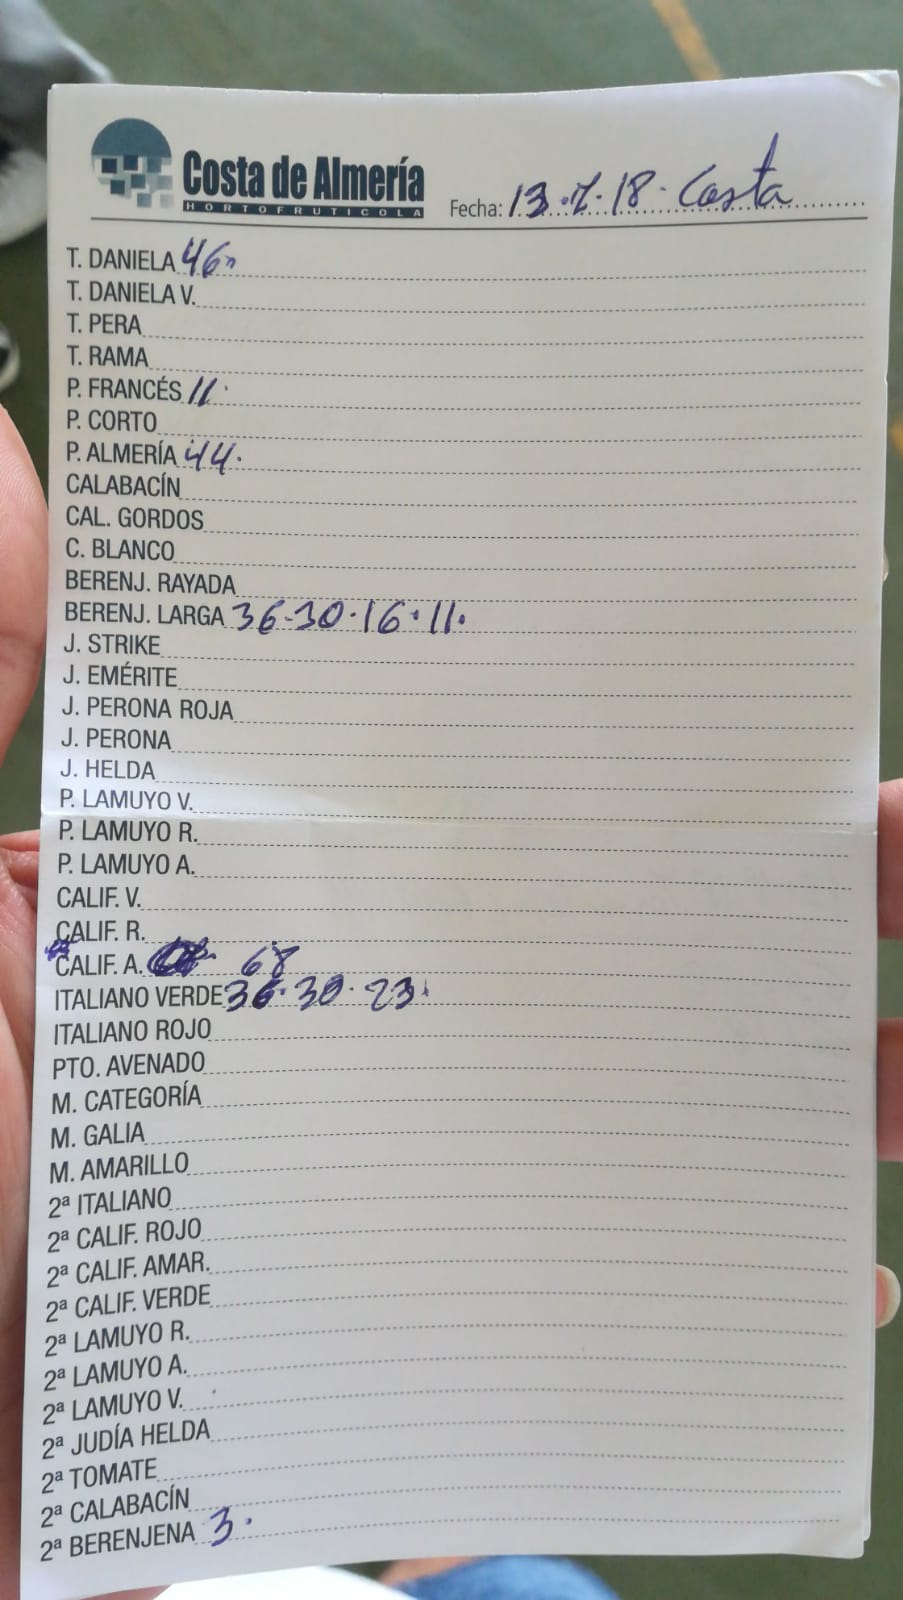 Costa de Almería
HORTOFRUTICOLA
Fecha: 13.7.18. Costa
T. DANIELA 46
T. DANIELA V.
T. PERA
T. RAMA
P. FRANCÉS 11.
P. CORTO
P. ALMERÍA 44.
CALABACÍN
CAL. GORDOS
C. BLANCO
BERENJ. RAYADA
BERENJ. LARGA 36-30.16.11.
J. STRIKE
J. EMÉRITE
J. PERONA ROJA
J. PERONA
J. HELDA
P. LAMUYO V.
P. LAMUYO R.
P. LAMUYO A.
CALIF. V.
CALIF. R.
CALIF. A. 68
ITALIANO VERDE 36.30.23.
ITALIANO ROJO
PTO. AVENADO
M. CATEGORÍA
M. GALIA
M. AMARILLO
2ª ITALIANO
2ª CALIF. ROJO
2ª CALIF. AMAR.
2ª CALIF. VERDE
2ª LAMUYO R.
2ª LAMUYO A.
2ª LAMUYO V.
2ª JUDÍA HELDA
2ª TOMATE
2ª CALABACÍN
2ª BERENJENA 3.